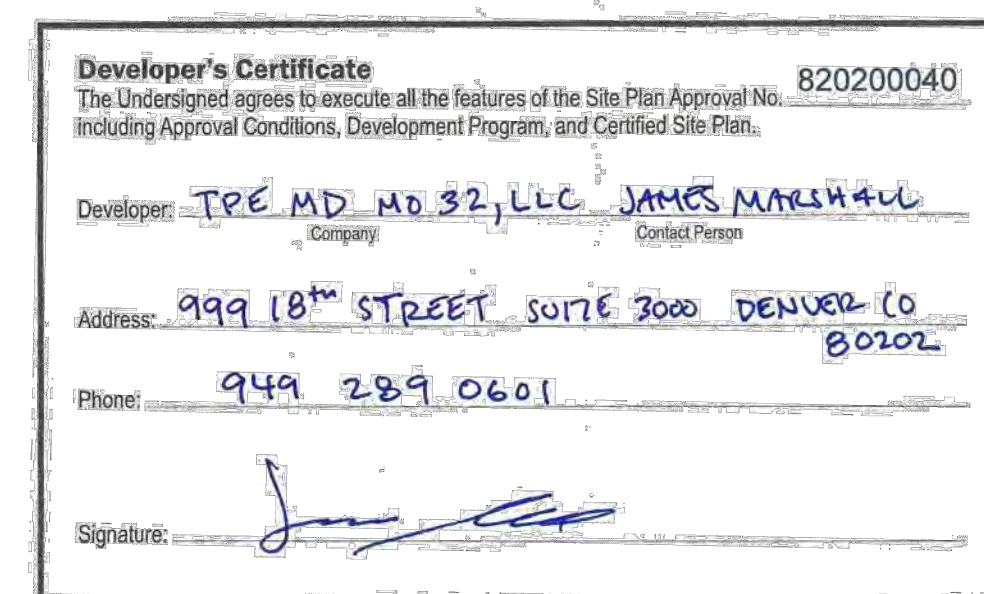 Developer's Certificate
The Undersigned agrees to execute all the features of the Site Plan Approval No. 820200040
including Approval Conditions, Development Program, and Certified Site Plan.
Developer: TPE MD MO 32, LLC JAMES MARSHALL
Company Contact Person
Address: 999 18th STREET SUITE 3000 DENVER CO
80202
Phone: 949 289 0601
Signature: